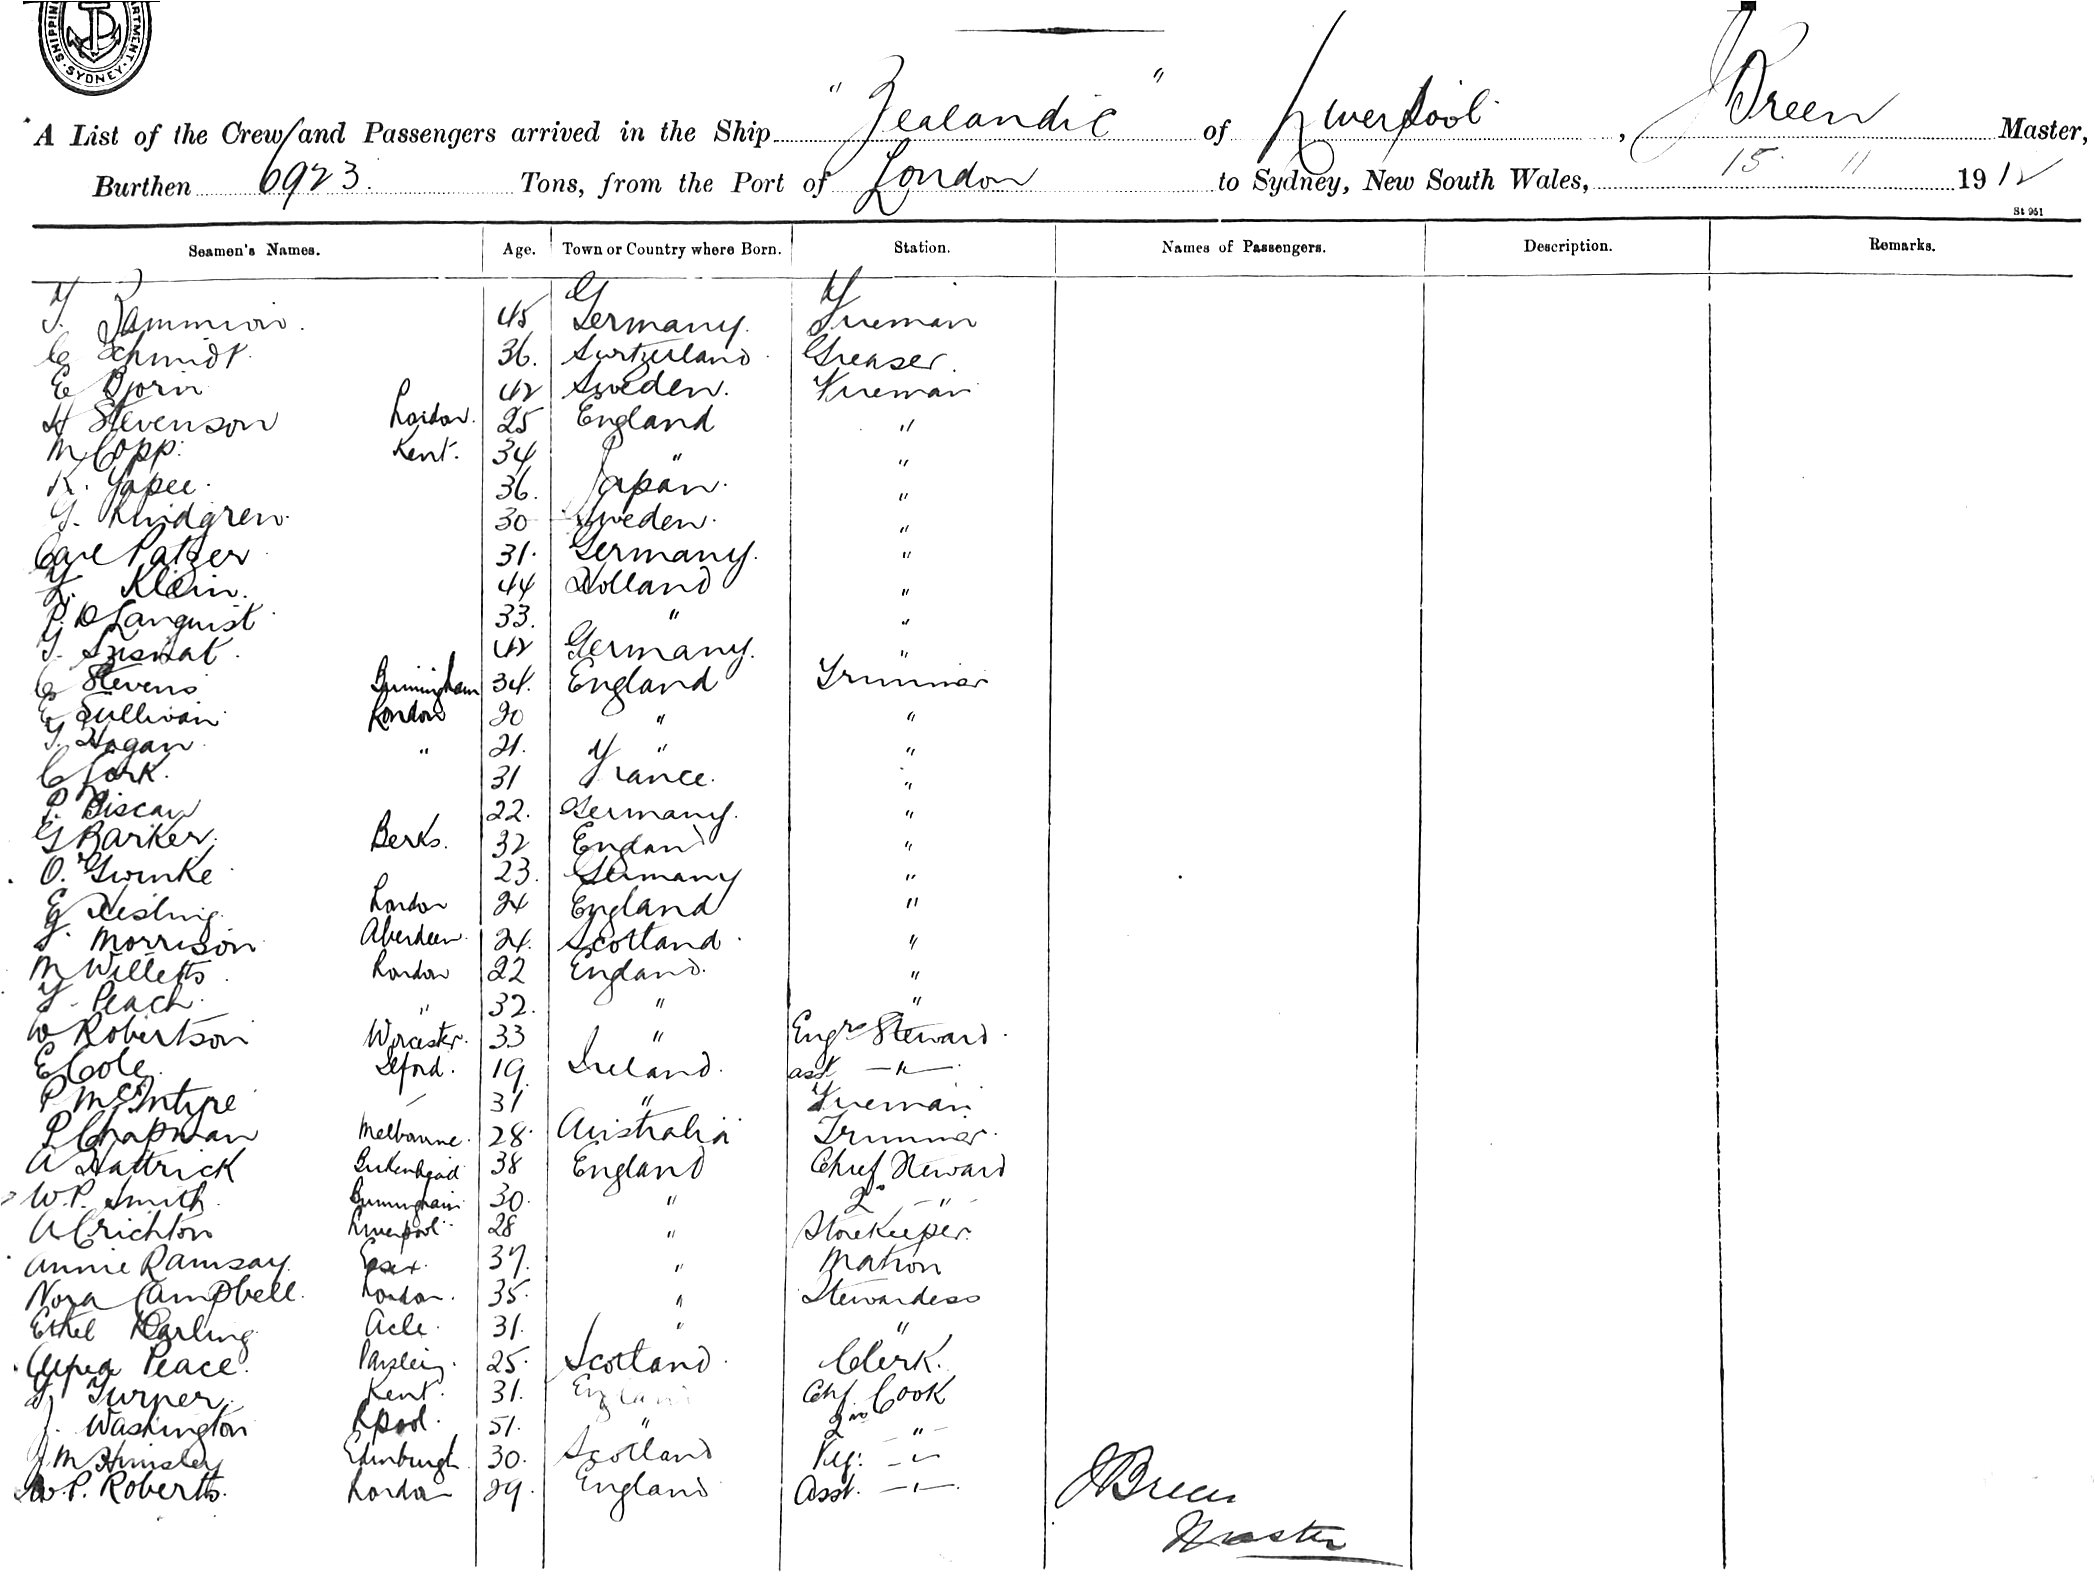 SHIPPING DEPARTMENT. SYDNEY.
A List of the Crew/and Passengers arrived in the Ship "Zealandic" of Liverpool, J Breen Master,
Burthen 6923. Tons, from the Port of London to Sydney, New South Wales, 15 11 1912
St 951
Seamen's Names. Age. Town or Country where Born. Station. Names of Passengers. Description. Remarks.
45 Germany. Fireman
C Schmidt. 36. Switzerland Greaser.
E Bjorn 42 Sweden. Fireman
H Stevenson London. 25 England "
M Copp. Kent. 34 " "
K. 36. Japan. "
G. Lindgren. 30 Sweden. "
Carl Patzer 31. Germany. "
F. Klein. 44 Holland "
P. 33. " "
42 Germany. "
C Stevens Birmingham 34. England Trimmer
E Sullivan London 20 " "
T. Hogan " 21. " "
C 31 France. "
P. Biscay 22. Germany. "
G Barker. Berks. 32 England "
O. 23. Germany "
E London 24 England "
Morrison Aberdeen. 24. Scotland. "
M Willetts London 22 England. "
Peach. " 32. " "
W Robertson Worcester. 33 " Engrs Steward.
E Cole. Ilford. 19. Ireland. asst —"—
P McIntyre 31 " Fireman.
P Chapman Melbourne. 28. Australia Trimmer.
A Hattrick Birkenhead 38 England Chief Steward
W. P. Smith. Birmingham 30. " 2° —"—
A Crichton Liverpool 28 " Storekeeper.
Annie Ramsay. Essex. 37. " Matron
Nora Campbell. London. 35. " Stewardess
Ethel Darling Acle. 31. " "
Peace. Paisley. 25. Scotland. Clerk.
Turner. Kent. 31. England Chf Cook
J. Washington Lpool. 51. " 2nd —"—
J. M Edinburgh 30. Scotland Veg: —"—
W. P. Roberts. London 29. England Asst. —"—
J Breen
Master